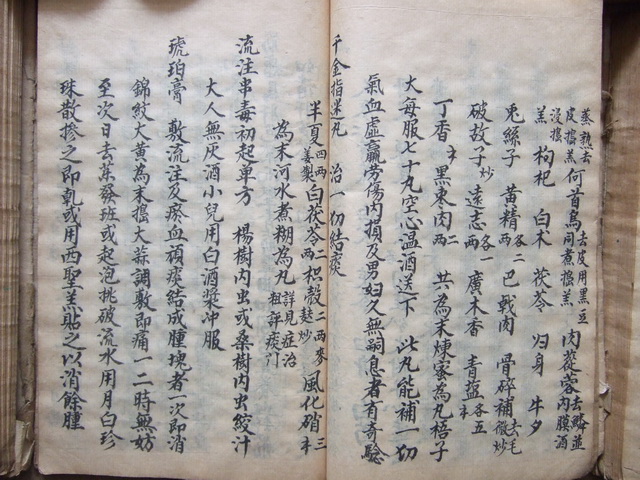 蒸熟去皮搗羔何首烏去皮用黑豆同煮搗羔肉蓯蓉去鱗並內膜酒
浸搗羔枸杞 白朮 茯苓 归身 牛夕
兎絲子 黃精各二両 巴戟肉 骨碎補去毛微炒
破故子炒 遠志各一両 廣木香 青盐各五
丁香 黑棗肉二両 共為末煉蜜為丸梧子
大每服七十丸空心溫酒送下 此丸能補一切
氣血虛羸勞傷內損及男妇久無嗣息者有奇驗
千金指迷丸 治一切結痰
半夏四両姜製白茯苓二両枳殼二両麥麩炒風化硝三
為末河水煮糊為丸詳見症治
流注串毒初起單方 楊樹內虫或桑樹內虫絞汁
大人無灰酒小兒用白酒漿冲服
琥珀膏 敷流注及瘀血頑痰結成腫塊者一次即消
錦紋大黃為末搗大蒜調敷即痛一二時無妨
至次日去藥發班或起泡挑破流水用月白珍
珠散摻之即乾或用西聖羔貼之以消餘腫